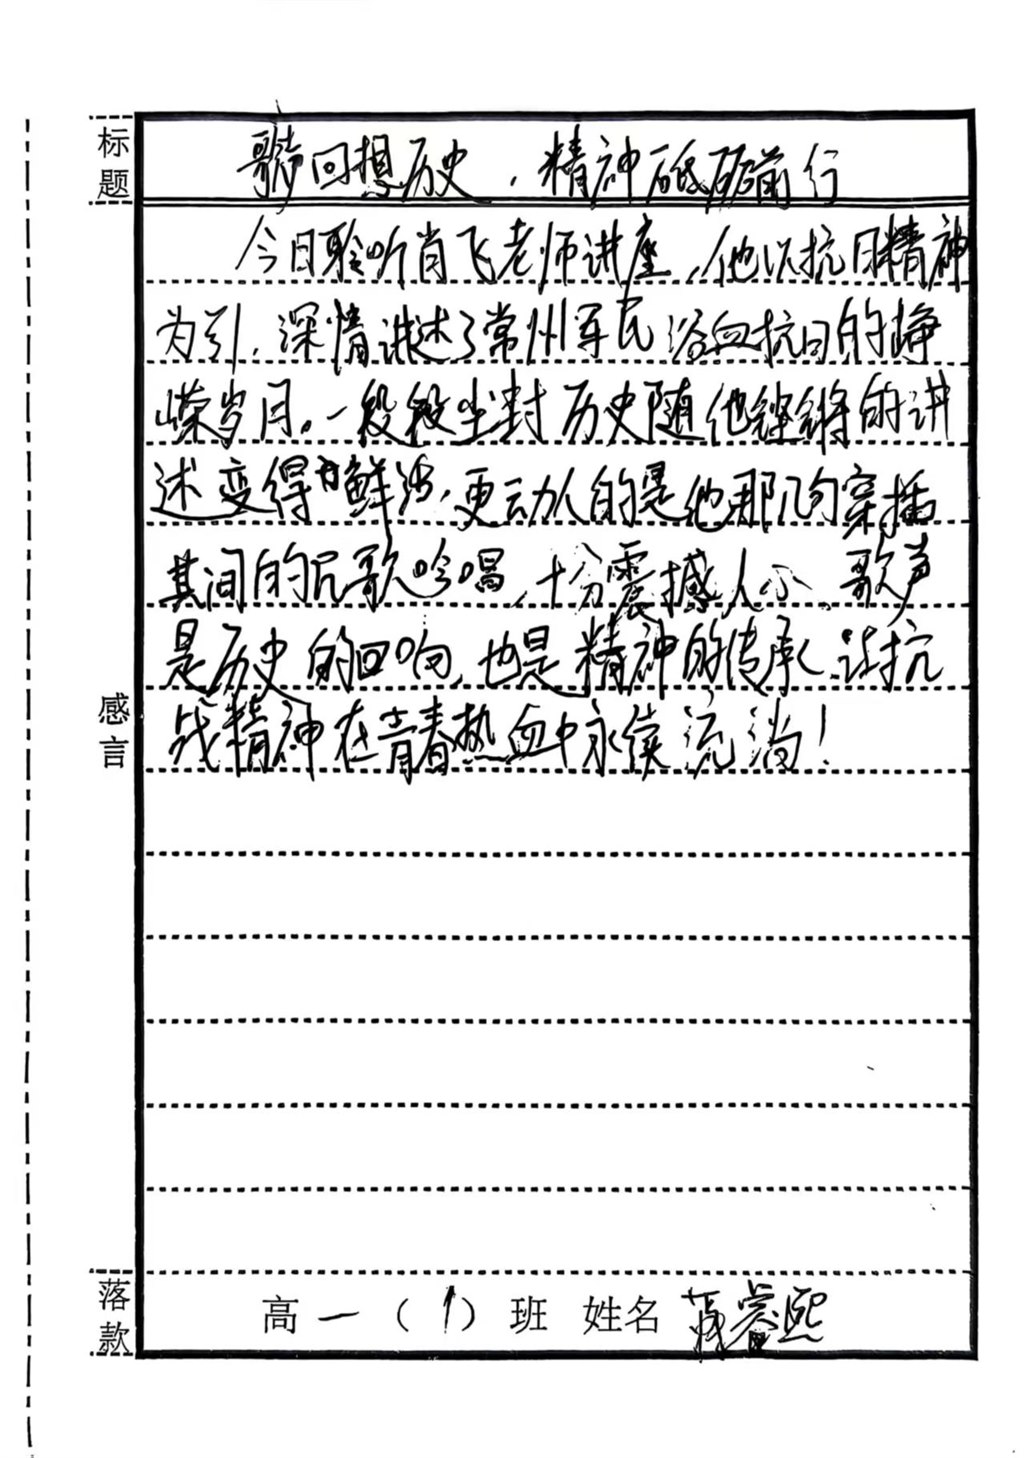 标题
歌声回想历史，精神砥砺前行
今日聆听肖飞老师讲座，他以抗日精神
为引，深情讲述了常州军民浴血抗日的峥
嵘岁月。一段段尘封历史随他铿锵的讲
述变得鲜活，更动人的是他那几句穿插
其间的民歌吟唱，十分震撼人心，歌声
是历史的回响，也是精神的传承，让抗
战精神在青春热血中永续流淌！
感言
落款
高一（1）班 姓名 睿熙